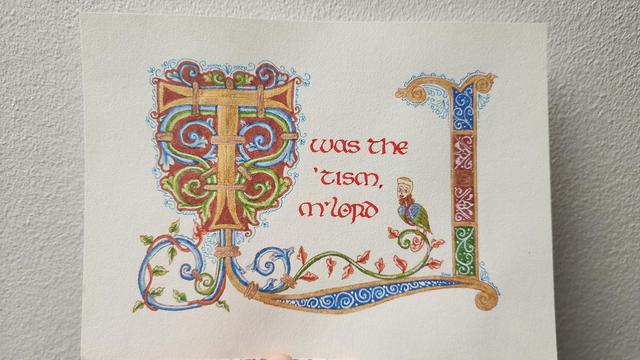 Twas the
'tism,
m'lord